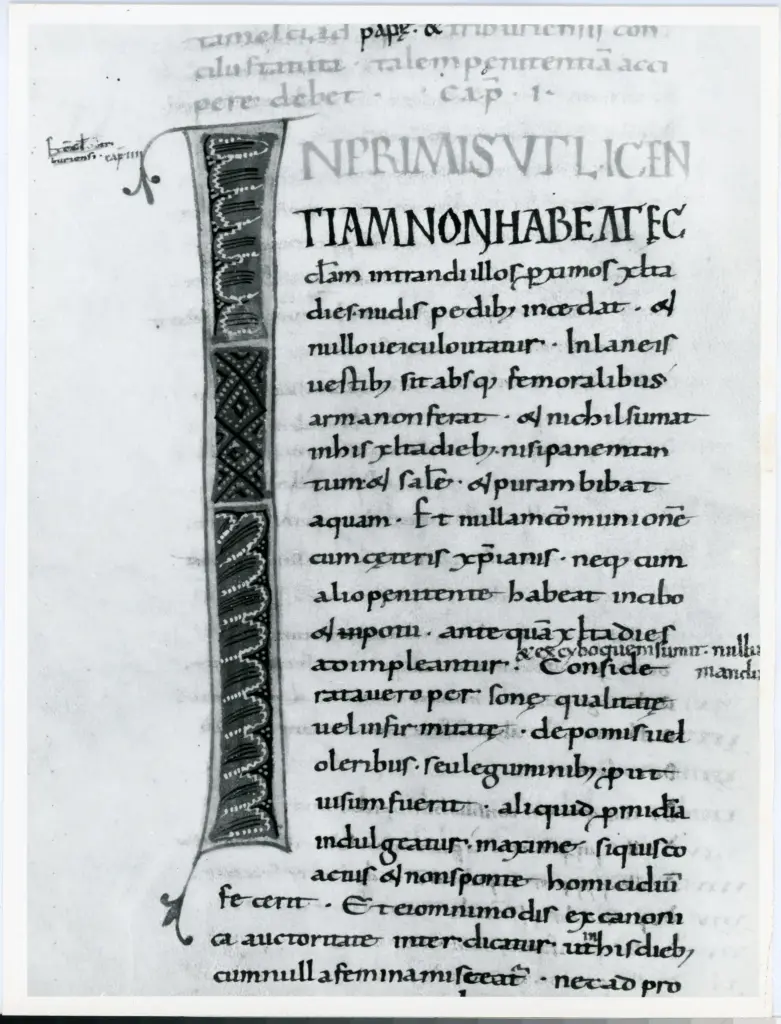 papę · &
triburiensi con
cilii statuta · talem penitentiā acci
pere debet · Cap̄ · I ·
IN PRIMIS VT LICEN
TIAM NON HABEAT EC
clām intrandi illos pximos xlta
dies · nudis pedib; incedat · &
nullo ueiculo utatur · In laneis
uestib; sit absq; femoralibus
arma non ferat · & nichil sumat
in his xlta dieb; nisi panem tan
tum & sale · & puram bibat
aquam · Et nullam cōmunionē
cum cęteris xp̄ianis · neq; cum
alio penitente habeat in cibo
& in potu · ante quā xlta dies
adimpleantur · Conside
& ex cybo quem sumit · null
mandu
rata uero personę qualitate
uel infirmitatę · de pomis uel
oleribus · seu leguminib; put
uisum fuerit · aliquid p midia
indulgeatur · maxime si quis co
actus & non sponte homicidiū
fecerit · Et ei omnimodis ex canoni
ca auctoritate interdicatur · ut in his dieb;
cum nulla femina misceat · nec ad pro